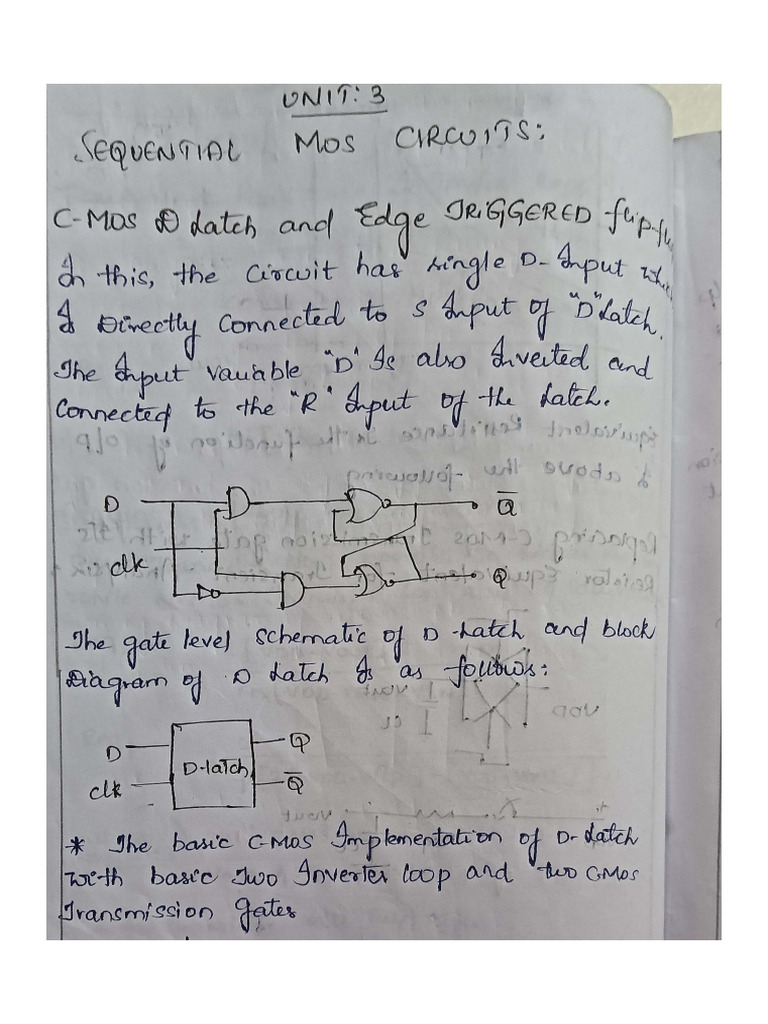 UNIT: 3
SEQUENTIAL MOS CIRCUITS:
C-MOS D Latch and Edge TRIGGERED
In this, the circuit has single D-Input
Is Directly Connected to S Input of "D" Latch.
The Input variable "D" Is also Inverted and
Connected to the "R" Input of the Latch.
D
Q̅
clk
Q
The gate level schematic of D-Latch and block
Diagram of D Latch Is as follows:
D
Q
D-latch
clk
Q̅
* The basic C-MOS Implementation of D-Latch
with basic Two Inverter loop and two C-MOS
Transmission gates